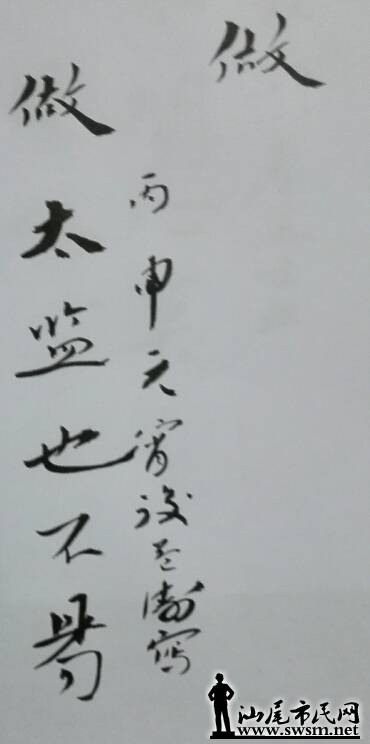 做太监也不易
丙申元宵 写
做
汕尾市民网
www.swsm.net